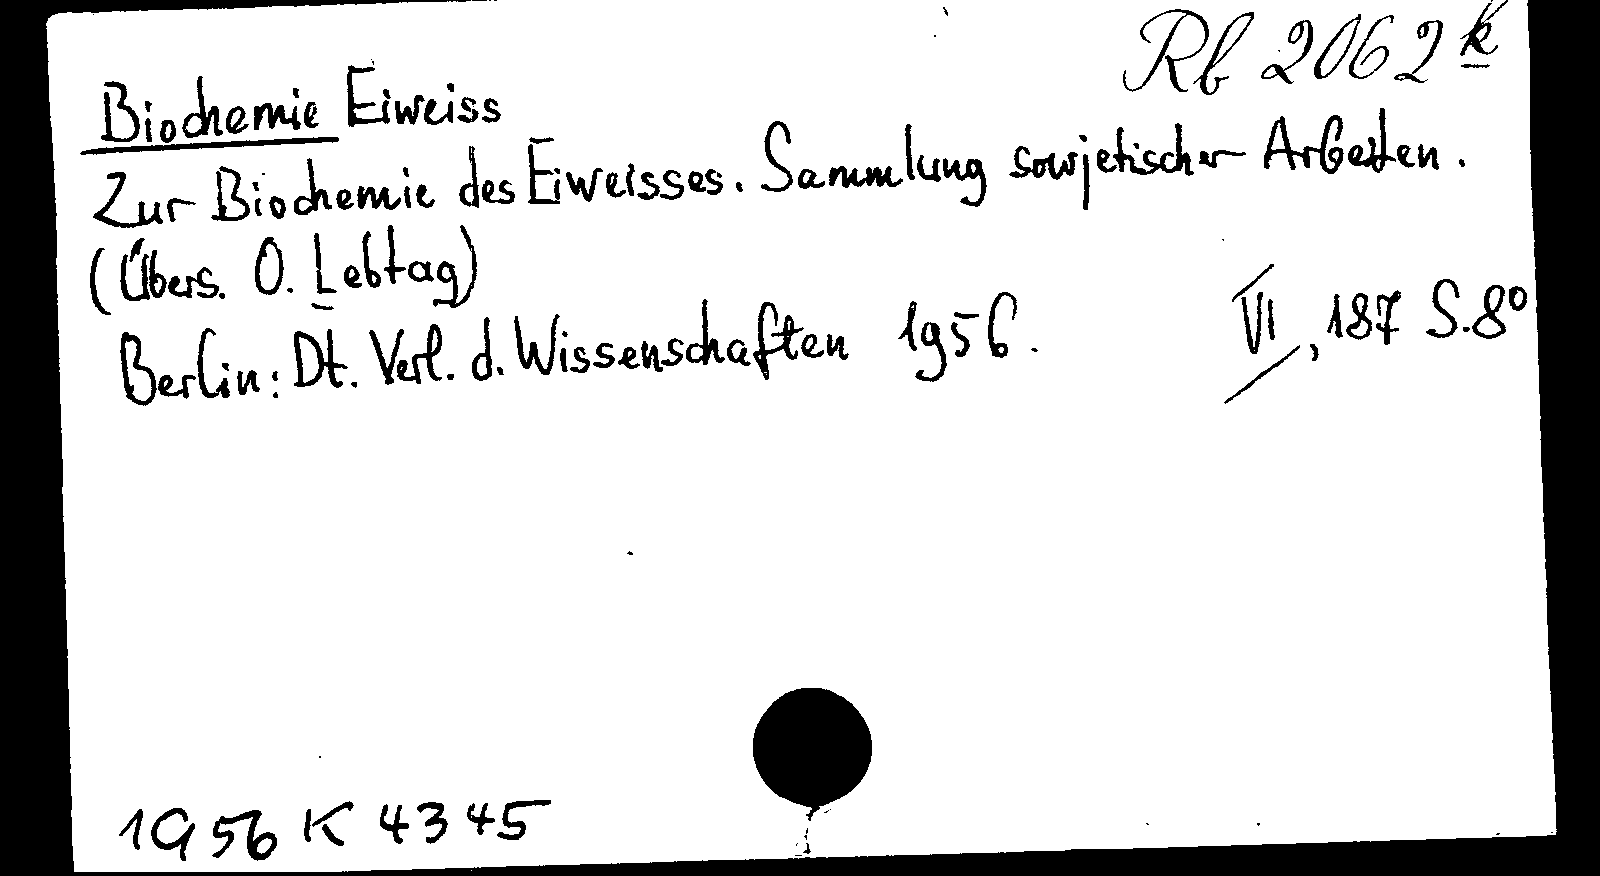 Rb 2062 k
Biochemie Eiweiss
Zur Biochemie des Eiweisses. Sammlung sowjetischer Arbeiten.
(Übers. O. Lebtag)
Berlin: Dt. Verl. d. Wissenschaften 1956. VI, 187 S. 8°
1956 K 4345